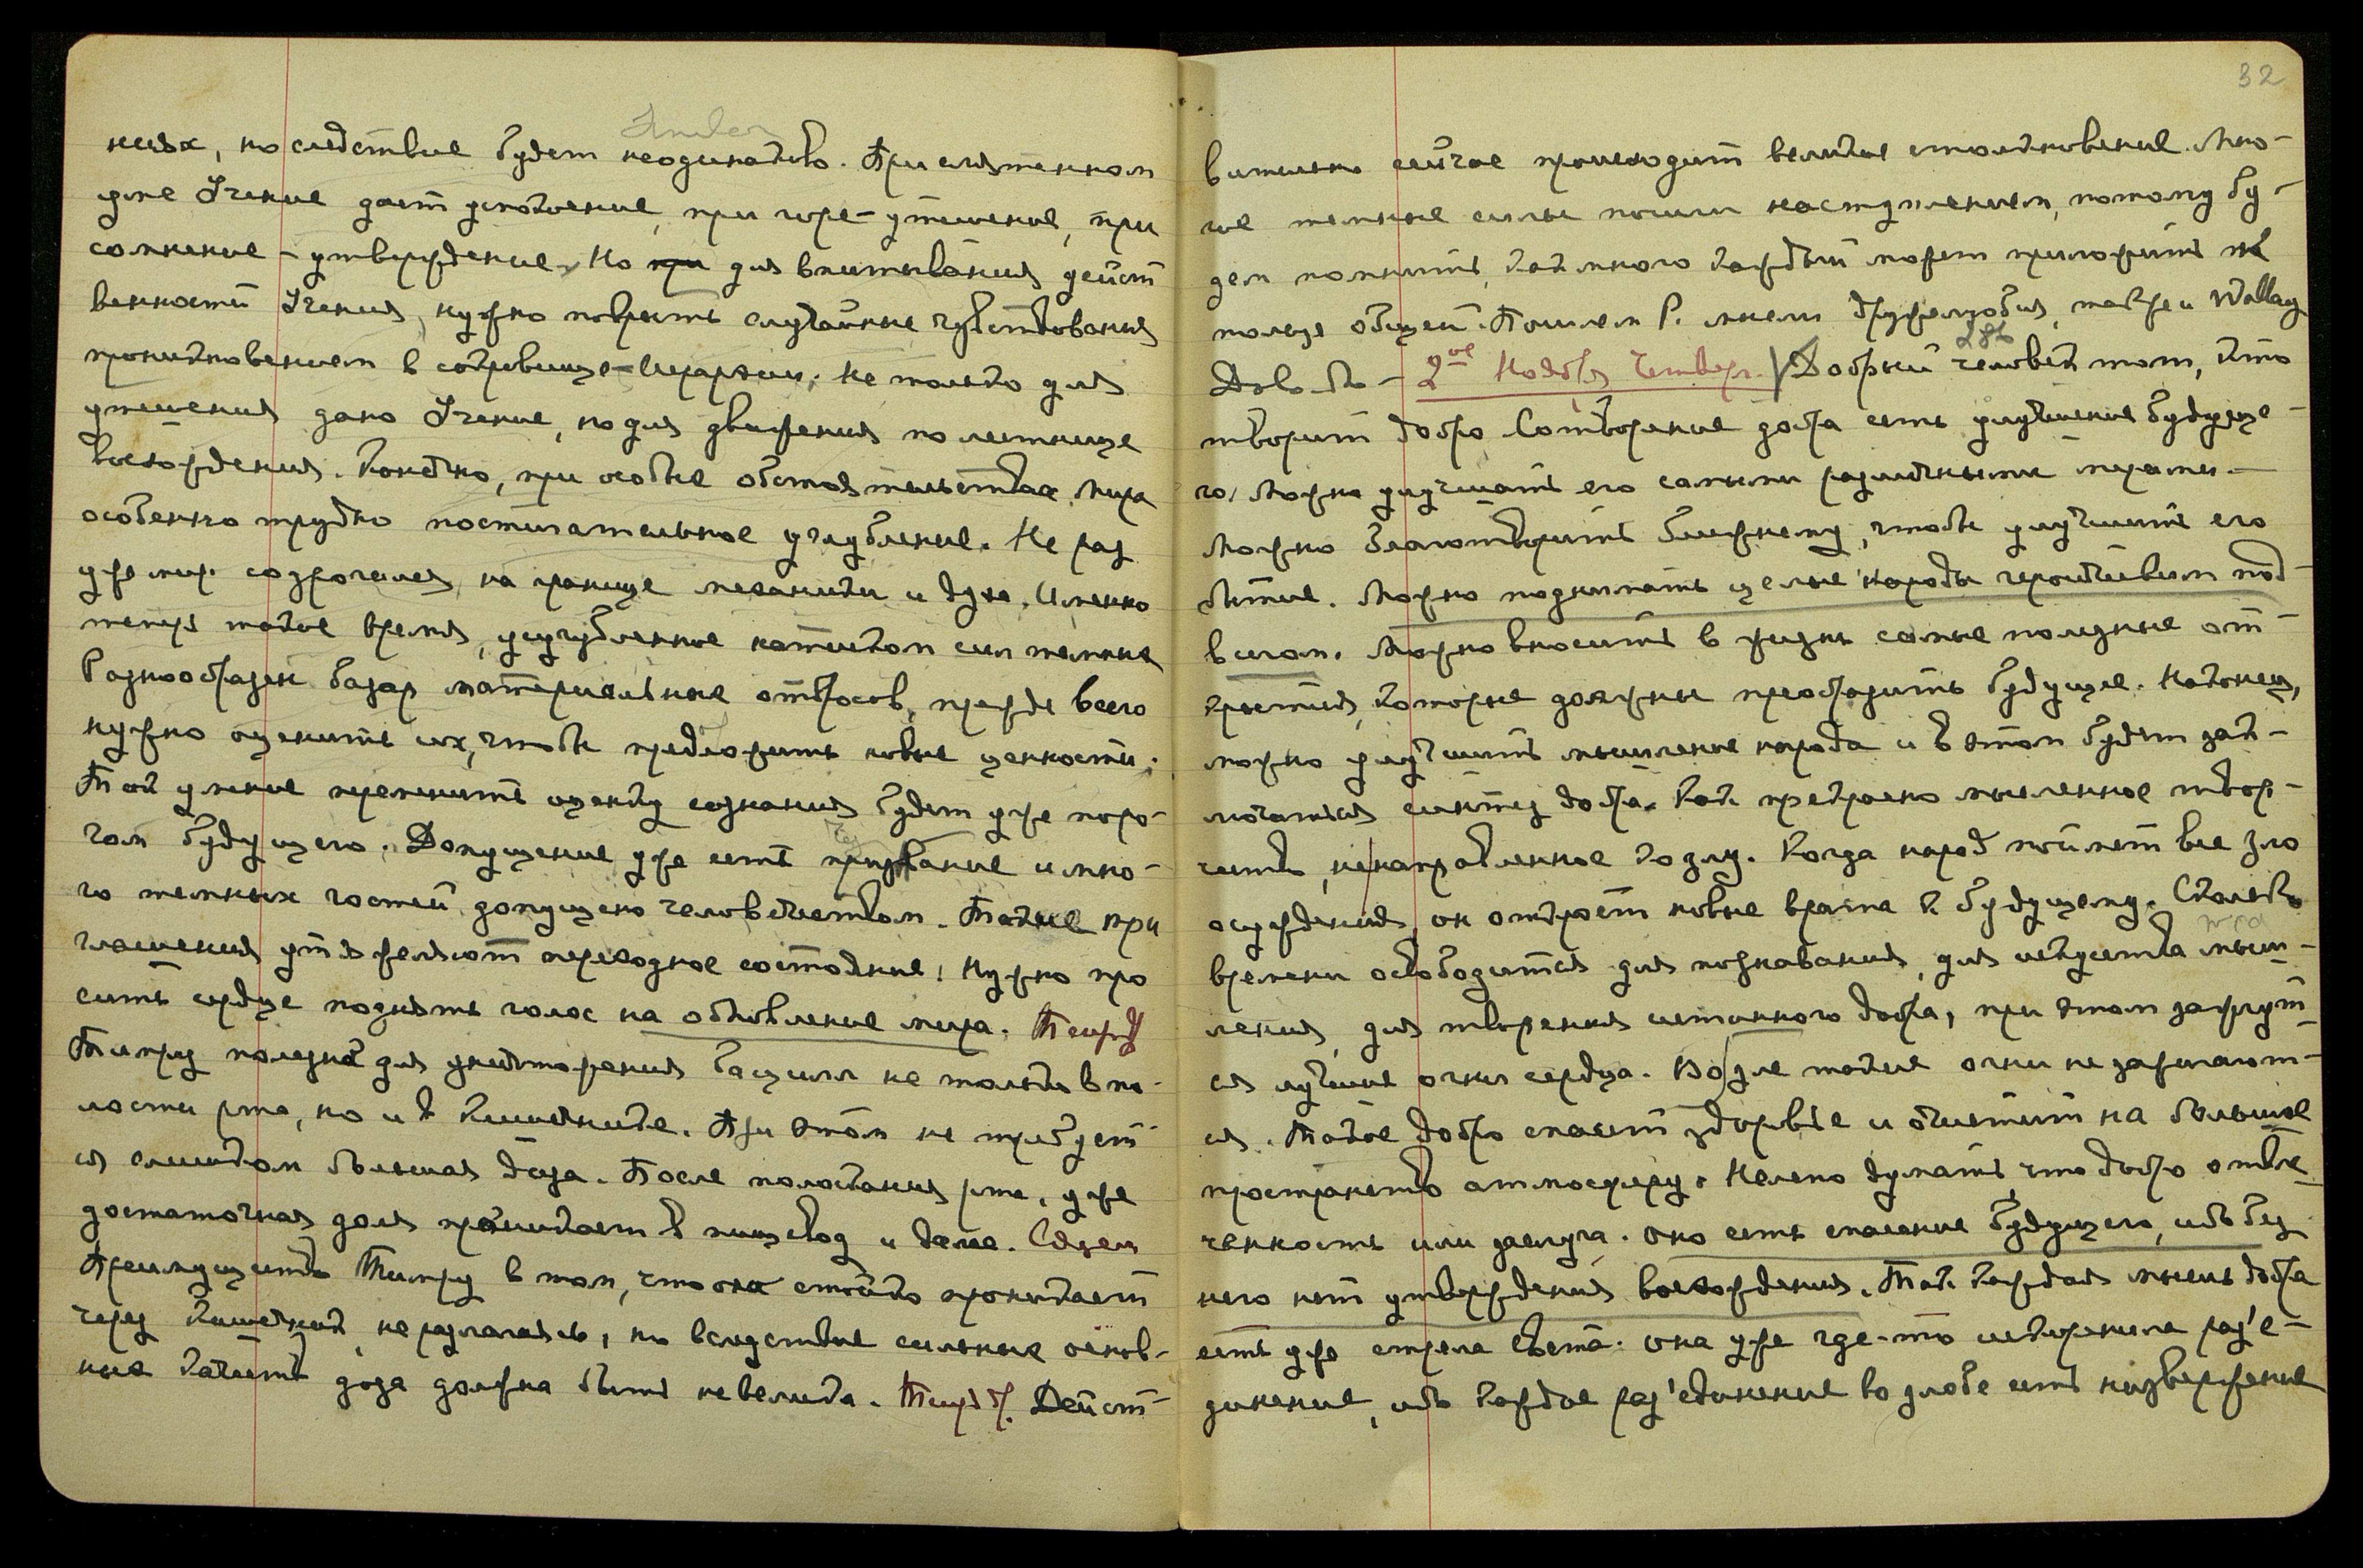 ниях, но следствие будет неодинаково. При смятенном
уме Учение дает успокоение, при горе – утешение, при
сомнение – утверждение. Но при для впитывания дейст
венности Учения, нужно покрыть случайные чувствования
проникновением в сокровище Иерархии. Не только для
утешения дано Учение, но для движения по лестнице
восхождения. Конечно, при особые обстоятельствах Мира
особенно трудно постигательное углубление. Не раз
уже мир содрогался на границе механики и духа. Именно
теперь такое время, усугубленное натиском сил темных
Разнообразен базар материальные отбросов, прежде всего
нужно оценить их, чтобы предложить новые ценности.
Так умение переменить оценку сознания будет уже поро-
гом будущего. Допущение уже есть призвание и мно-
го темных гостей допущено человечеством. Такие при
глашения утяжеляют переходное состояние! Нужно про
сить сердце поднять голос на обновление мира.
полезна для уничтожения бацилл не только в по-
лости рта, но и в кишечнике. При этом не требует
ся слишком большая доза. После полоскания рта, уже
достаточная доля проникает в пищевод и далее.
Преимущество в том, что она стойко проникает
через кишечник, не разлагаясь, но вследствие сильные основ-
ные качеств доза должна быть невелика. Дейст-
32
вительно сейчас происходит великое столкновение. Мно-
гие темные силы пошли наступлением, потому бу-
дем помнить, как много каждый может приложить к
пользе общей. Пошлем Р. мысли дружелюбия, также и Wallace
Довольно – 2ое Ноябрь Четверг. Добрый человек тот, кто
286
творит добро. Сотворение добра есть улучшение будуще-
го. Можно улучшать его самыми различными мерами.
Можно благотворить ближнему, чтобы улучшить его
бытие. Можно поднимать целые народы героическим под-
вигом. Можно вносить в жизнь самые полезные от-
крытия, которые должны преобразить будущее. Наконец,
можно улучшить мышление народа и в этом будет зак-
лючаться синтез добра. Как прекрасно мысленное твор-
чество, ненаправленное ко злу. Когда народ поймет все зло
осуждения, он откроет новые врата к будущему. Сколько
времени освободится для познавания, для искусства мыш-
ления, для творения истинного добра, при этом зажгут
ся лучшие огни сердца. Во зле такие огни не зажигают-
ся. Такое добро спасет здоровье и очистит на большое
пространство атмосферу. Нелепо думать что добро отвле
ченность или заслуга. Оно есть спасение будущего, ибо без
него нет утверждения восхождения. Так каждая мысль добра
есть уже стрела Света. Она уже где-то искоренила раз'е-
динение, ибо каждое раз'единение во злобе есть низвержение